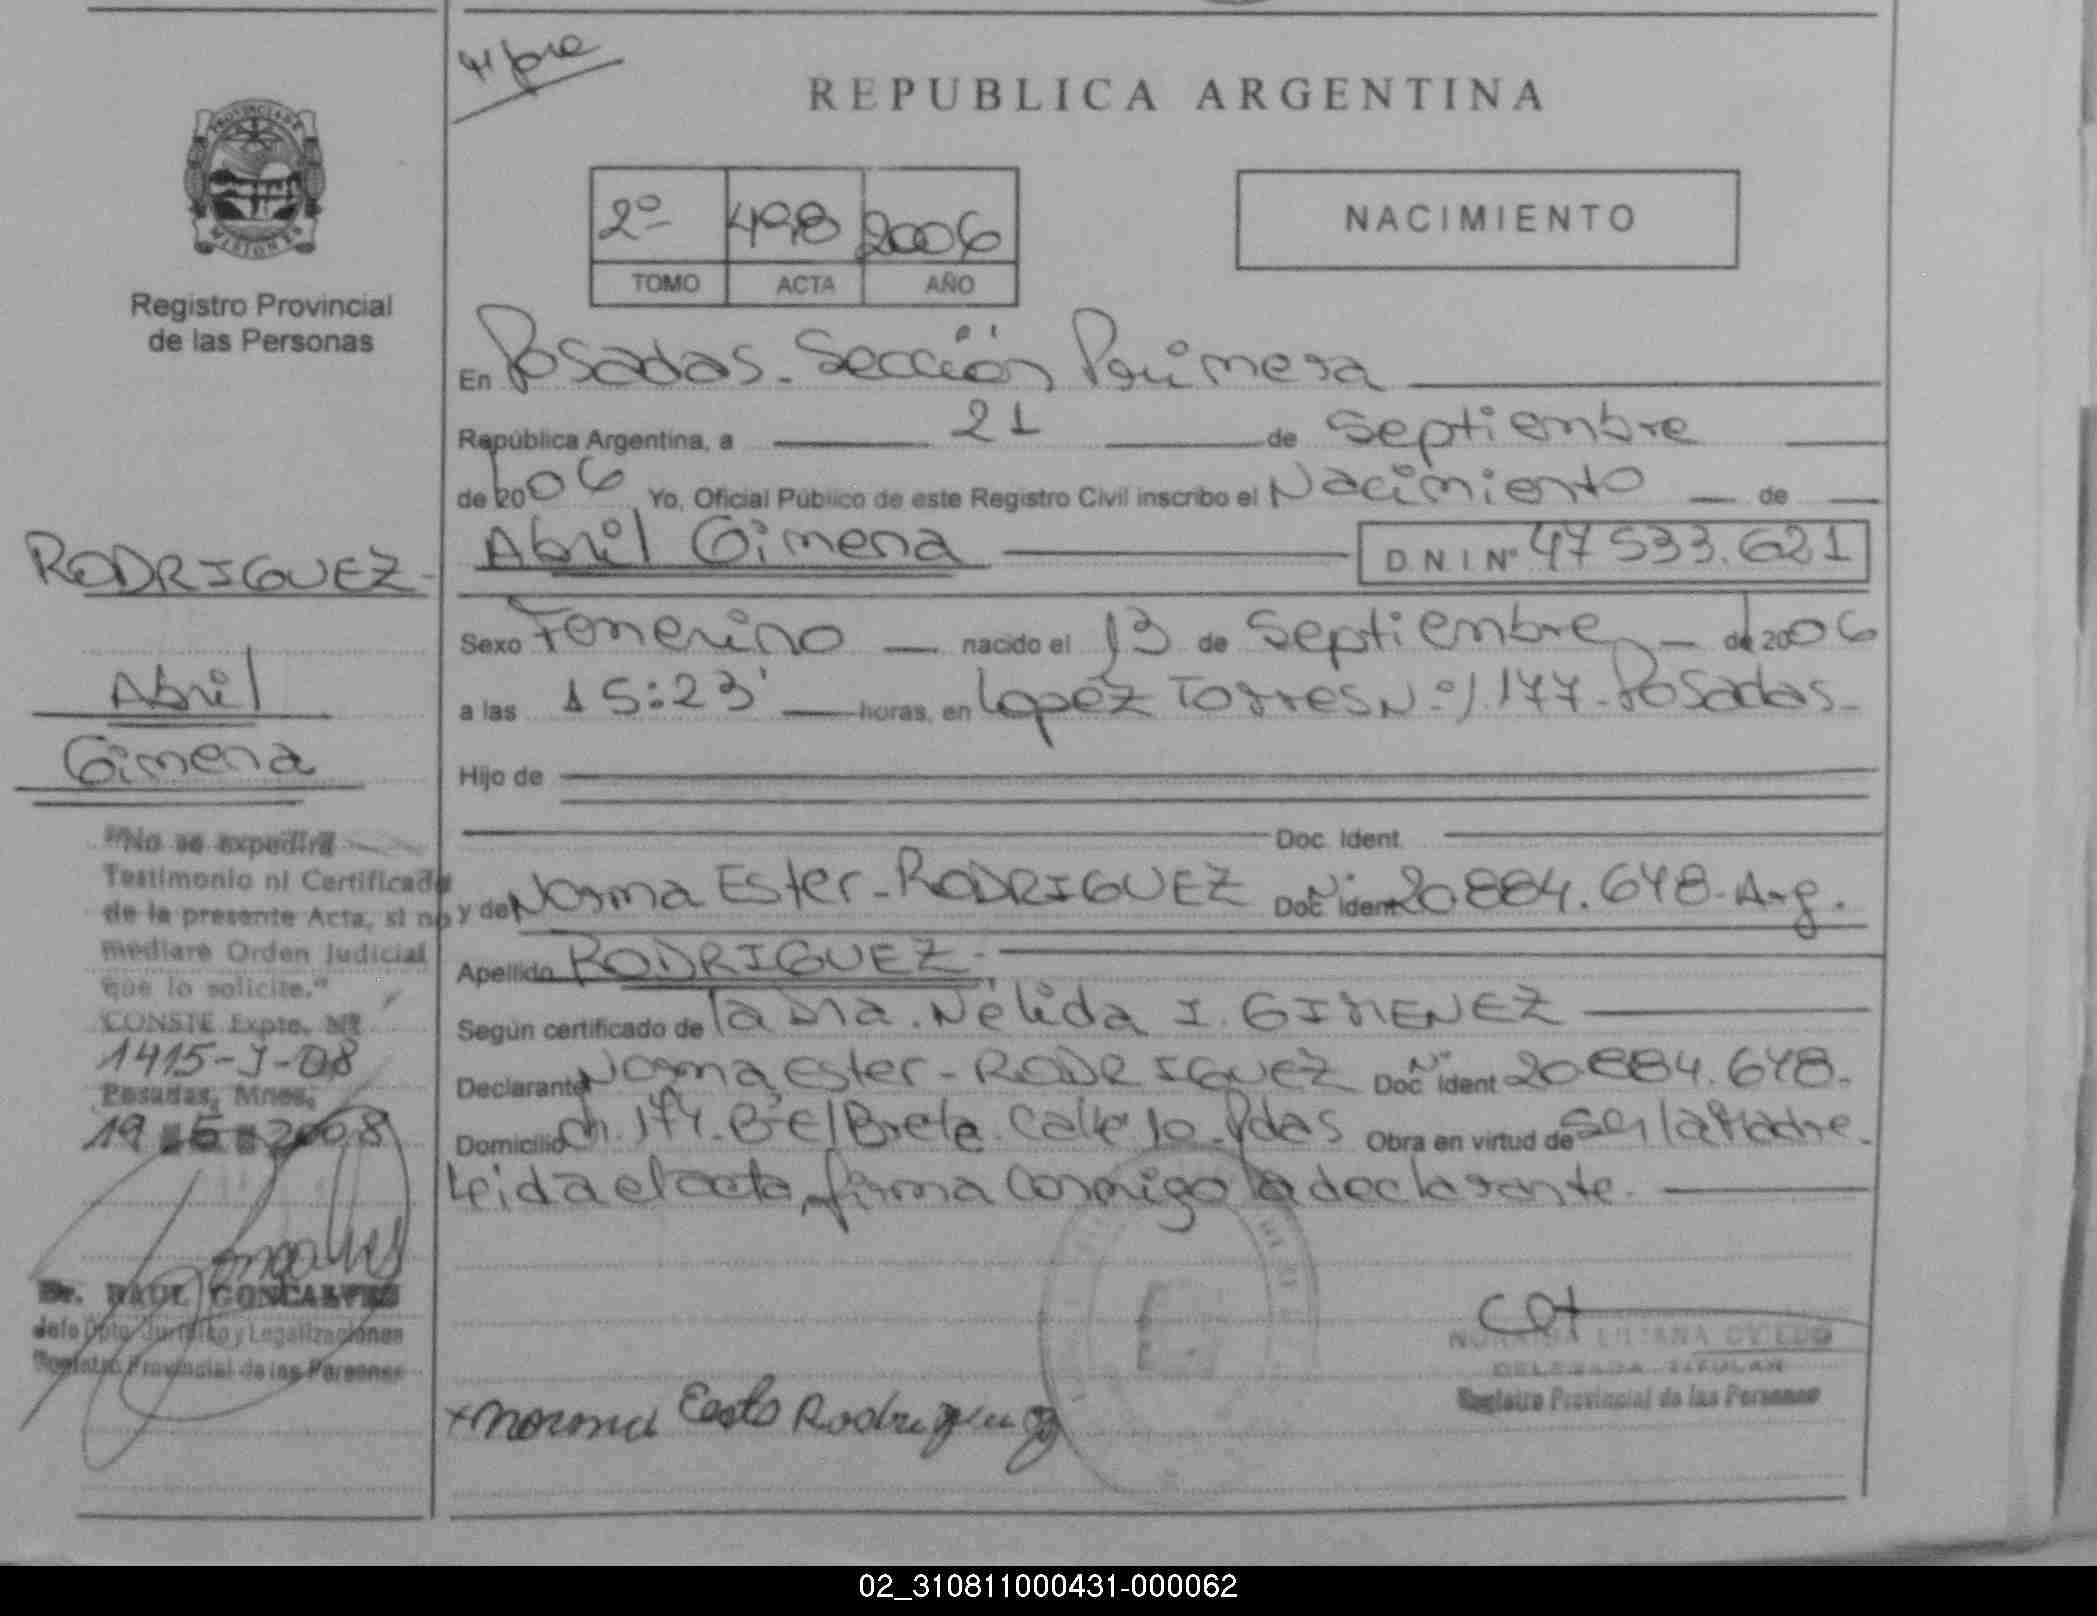 4'bre
REPUBLICA ARGENTINA
PROVINCIA DE
MISIONES
Registro Provincial
de las Personas
2º 498 2006
TOMO ACTA AÑO
NACIMIENTO
En Posadas. Sección Primera
República Argentina, a 21 de Septiembre
de 2006 Yo, Oficial Público de este Registro Civil inscribo el Nacimiento de
Abril Gimena D.N.I Nº 47533.621
Sexo Femenino nacido el 13 de Septiembre de 2006
a las 15:23' horas, en Lopez Torres Nº 1.177-Posadas-
Hijo de
Doc. Ident.
y de Norma Ester-RODRIGUEZ Doc Ident Nº 20.884.648-Arg.
Apellido RODRIGUEZ-
Según certificado de la Dra. Nélida I. GIMENEZ
Declarante Norma Ester-RODRIGUEZ Doc Ident Nº 20.884.648-
Domicilio Ch. 174. Bº El Brete. Calle 10. Pdas Obra en virtud de Ser la Madre.
Leida el acta, firma conmigo la declarante.
RODRIGUEZ-
Abril
Gimena
"No se expedira
Testimonio ni Certificado
de la presente Acta, si no
mediare Orden Judicial
que lo solicite."
CONSTE Expte. Nº
1415-J-08
Posadas, Mnes,
19 5 2008
Dr. RAUL GONCALVES
Jefe Dpto. Jurídico y Legalizaciones
Registro Provincial de las Personas
NORMA LILIANA OVIEDO
DELEGADA TITULAR
Registro Provincial de las Personas
x Norma Ester Rodriguez
02_310811000431-000062